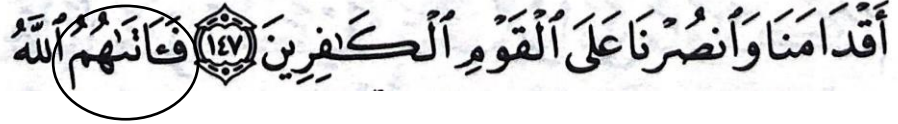 أَقْدَامَنَا وَٱنصُرْنَا عَلَى ٱلْقَوْمِ ٱلْكَـٰفِرِينَ ١٤٧ فَـَٔاتَىٰهُمُ ٱللَّهُ